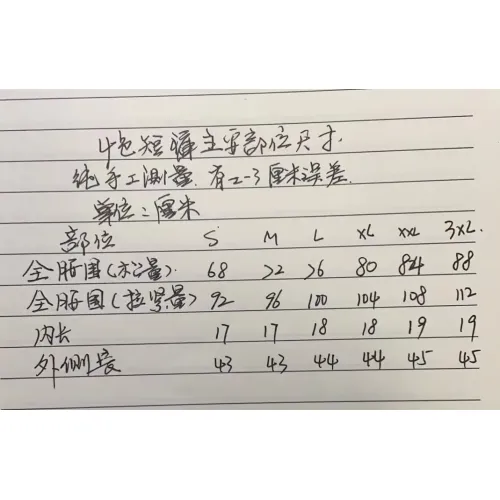 4包短裤主要部位尺寸.
纯手工测量.有2-3厘米误差.
单位:厘米
部位 S M L XL XXL 3XL.
全腰围(松量). 68 72 76 80 84 88
全腰围(拉紧量) 92 96 100 104 108 112
内长 17 17 18 18 19 19
外侧长 43 43 44 44 45 45